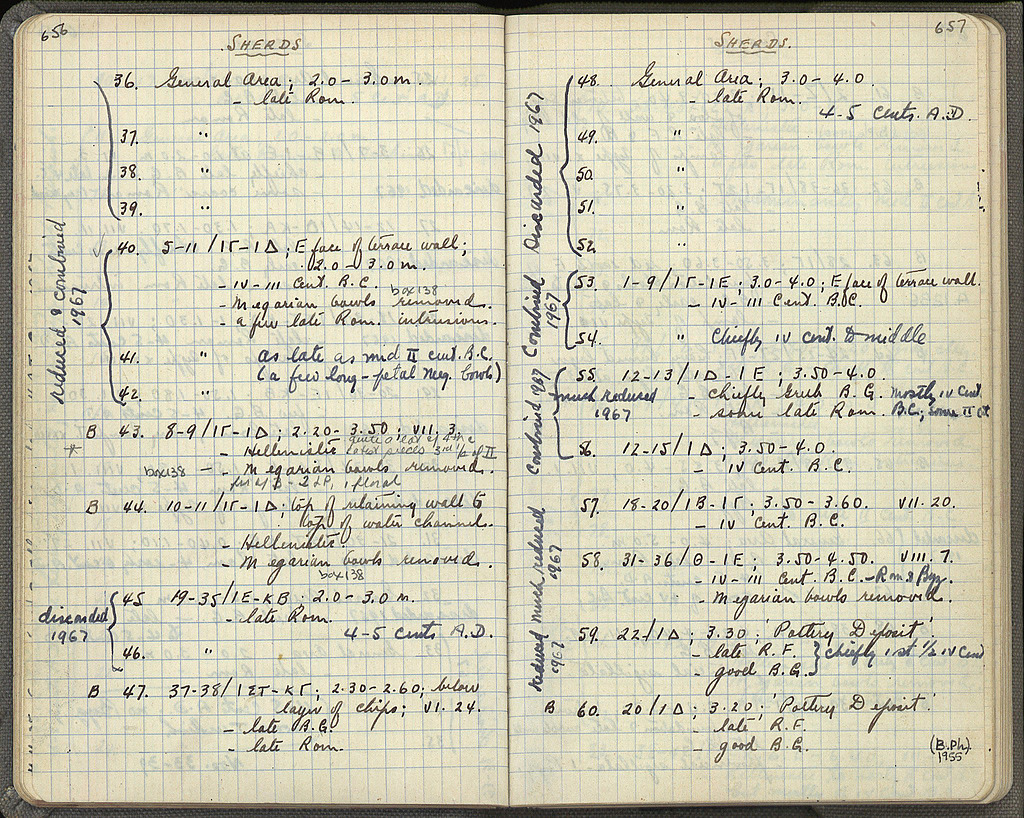 656
SHERDS
36. General Area; 2.0 - 3.0 m.
- late Rom.
37. "
38. "
39. "
reduced & combined
1967
40. 5-11 / ΙΓ - ΙΔ; E face of terrace wall;
2.0 - 3.0 m.
- IV - III cent. B.C.
box 138
- Megarian bowls removed.
- a few late Rom. intrusions.
41. " as late as mid II cent. B.C.
(a few long-petal Meg. bowls)
42. "
B 43. 8-9 / ΙΓ - ΙΔ; 2.20 - 3.50; VII. 3
- Hellenistic
latest pieces 3rd 1/4 of II
box 138 - Megarian bowls removed.
B 44. 10-11 / ΙΓ - ΙΔ; top of retaining wall to
top of water channel.
- Hellenistic.
- Megarian bowls removed.
box 138
discarded
1967
45. 19-35 / ΙΕ - ΚΒ; 2.0 - 3.0 m.
- late Rom.
4-5 cents A.D.
46. "
B 47. 37-38 / ΙΣΤ - ΚΓ; 2.30 - 2.60; below
layer of chips; VI. 24.
- late B.G.
- late Rom.
657
SHERDS.
Discarded 1967
48. General Area; 3.0 - 4.0
- late Rom.
4-5 cents. A.D.
49. "
50. "
51. "
52. "
Combined
1967
53. 1-9 / ΙΓ - ΙΕ; 3.0 - 4.0; E face of terrace wall.
- IV - III Cent. B.C.
54. " Chiefly IV cent. to middle
Combined 1967
55. 12-13 / ΙΔ - ΙΕ; 3.50 - 4.0
much reduced
1967
- chiefly Greek B.G. mostly IV cent.
- some late Rom. B.C.; some II ct
56. 12-15 / ΙΔ; 3.50 - 4.0.
- IV cent. B.C.
much reduced
1967
57. 18-20 / ΙΒ - ΙΓ; 3.50 - 3.60. VII. 20.
- IV cent. B.C.
58. 31-36 / Θ - ΙΕ; 3.50 - 4.50. VIII. 7.
- IV - III cent. B.C. - Rom & Byz.
- Megarian bowls removed.
reduced
1967
59. 22 / ΙΔ; 3.30; 'Pottery Deposit'.
- late R.F.
- good B.G. } chiefly 1st 1/2 IV cent
B 60. 20 / ΙΔ; 3.20; 'Pottery Deposit'.
- late R.F.
- good B.G.
(B.Ph.)
1955